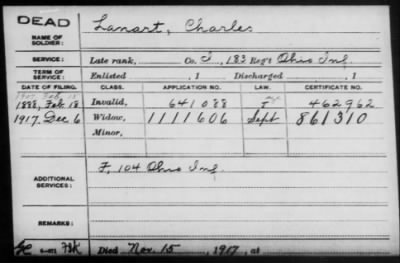 DEAD
NAME OF SOLDIER: Lanart, Charles
SERVICE: Late rank, Co. I, 183 Reg't Ohio Inf.
TERM OF SERVICE: Enlisted , 1 Discharged , 1
DATE OF FILING. CLASS. APPLICATION NO. LAW. CERTIFICATE NO.
1888, Feb 18 Invalid, 641088 462962
1917, Dec 6 Widow, 1111606 Sept 861310
Minor,
ADDITIONAL SERVICES: F, 104 Ohio Inf
REMARKS:
Died Nov. 15, 1917, at